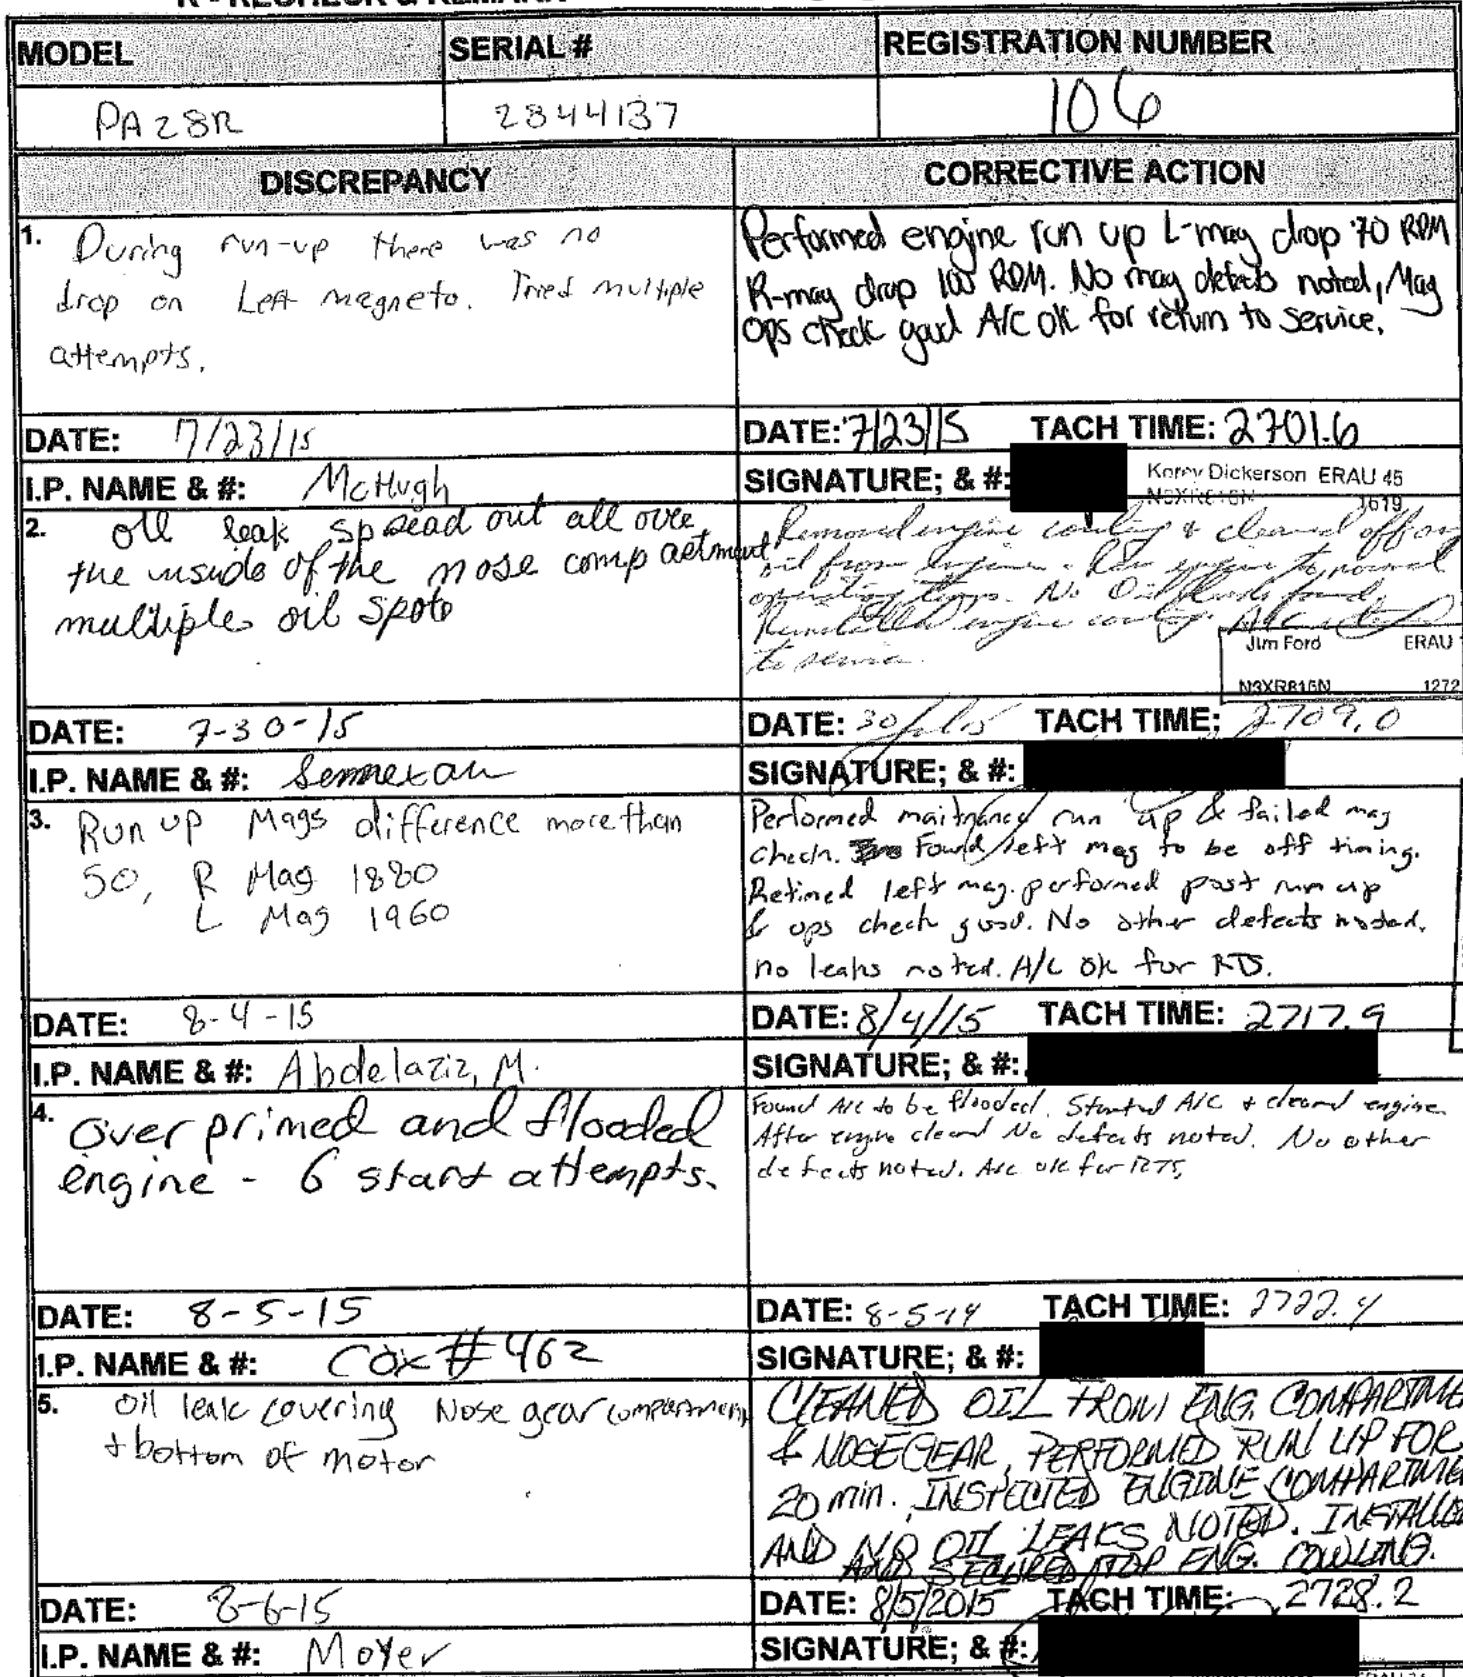 MODEL SERIAL # REGISTRATION NUMBER
PA28R 2844137 106
DISCREPANCY CORRECTIVE ACTION
1. During run-up there was no
drop on Left magneto. Tried multiple
attempts.
Performed engine run up L-mag drop 70 RPM
R-mag drop 100 RPM. No mag defects noted, Mag
ops check good A/C ok for return to service.
DATE: 7/23/15
DATE: 7/23/15 TACH TIME: 2701.6
I.P. NAME & #: McHugh
SIGNATURE; & #: Korey Dickerson ERAU 45
1619
2. oil leak spread out all over
the inside of the nose compartment
multiple oil spots
Removed engine cowling & cleaned off any
oil from engine. Ran engine to normal
operating temps. No Oil leaks found.
Reinstalled engine cowling. A/C
to service.
Jim Ford ERAU
N3XR816N 1272
DATE: 7-30-15
DATE: 30 15 TACH TIME; 2709.0
I.P. NAME & #:
SIGNATURE; & #:
3. Run up Mags difference more than
50, R Mag 1880
L Mag 1960
Performed maitnance run up & failed mag
check. Found left mag to be off timing.
Retimed left mag. performed post run up
& ops check good. No other defects noted.
no leaks noted. A/C ok for RTS.
DATE: 8-4-15
DATE: 8/4/15 TACH TIME: 2717.9
I.P. NAME & #: Abdelaziz, M.
SIGNATURE; & #:
4. Over primed and flooded
engine - 6 start attempts.
Found A/C to be flooded. Started A/C & cleared engine.
After engine cleared No defects noted. No other
defects noted. A/C ok for RTS,
DATE: 8-5-15
DATE: 8-5-14 TACH TIME: 2722.4
I.P. NAME & #: Cox #462
SIGNATURE; & #:
5. Oil leak covering Nose gear compartment
+ bottom of motor
CLEANED OIL FROM ENG. COMPARTME
& NOSE GEAR, PERFORMED RUN UP FOR
20 min. INSPECTED ENGINE COMPARTME
AND NO OIL LEAKS NOTED. INSTALLE
AND SECURED TOP ENG. COWLING.
DATE: 8-6-15
DATE: 8/5/2015 TACH TIME: 2728.2
I.P. NAME & #: Moyer
SIGNATURE; & #: